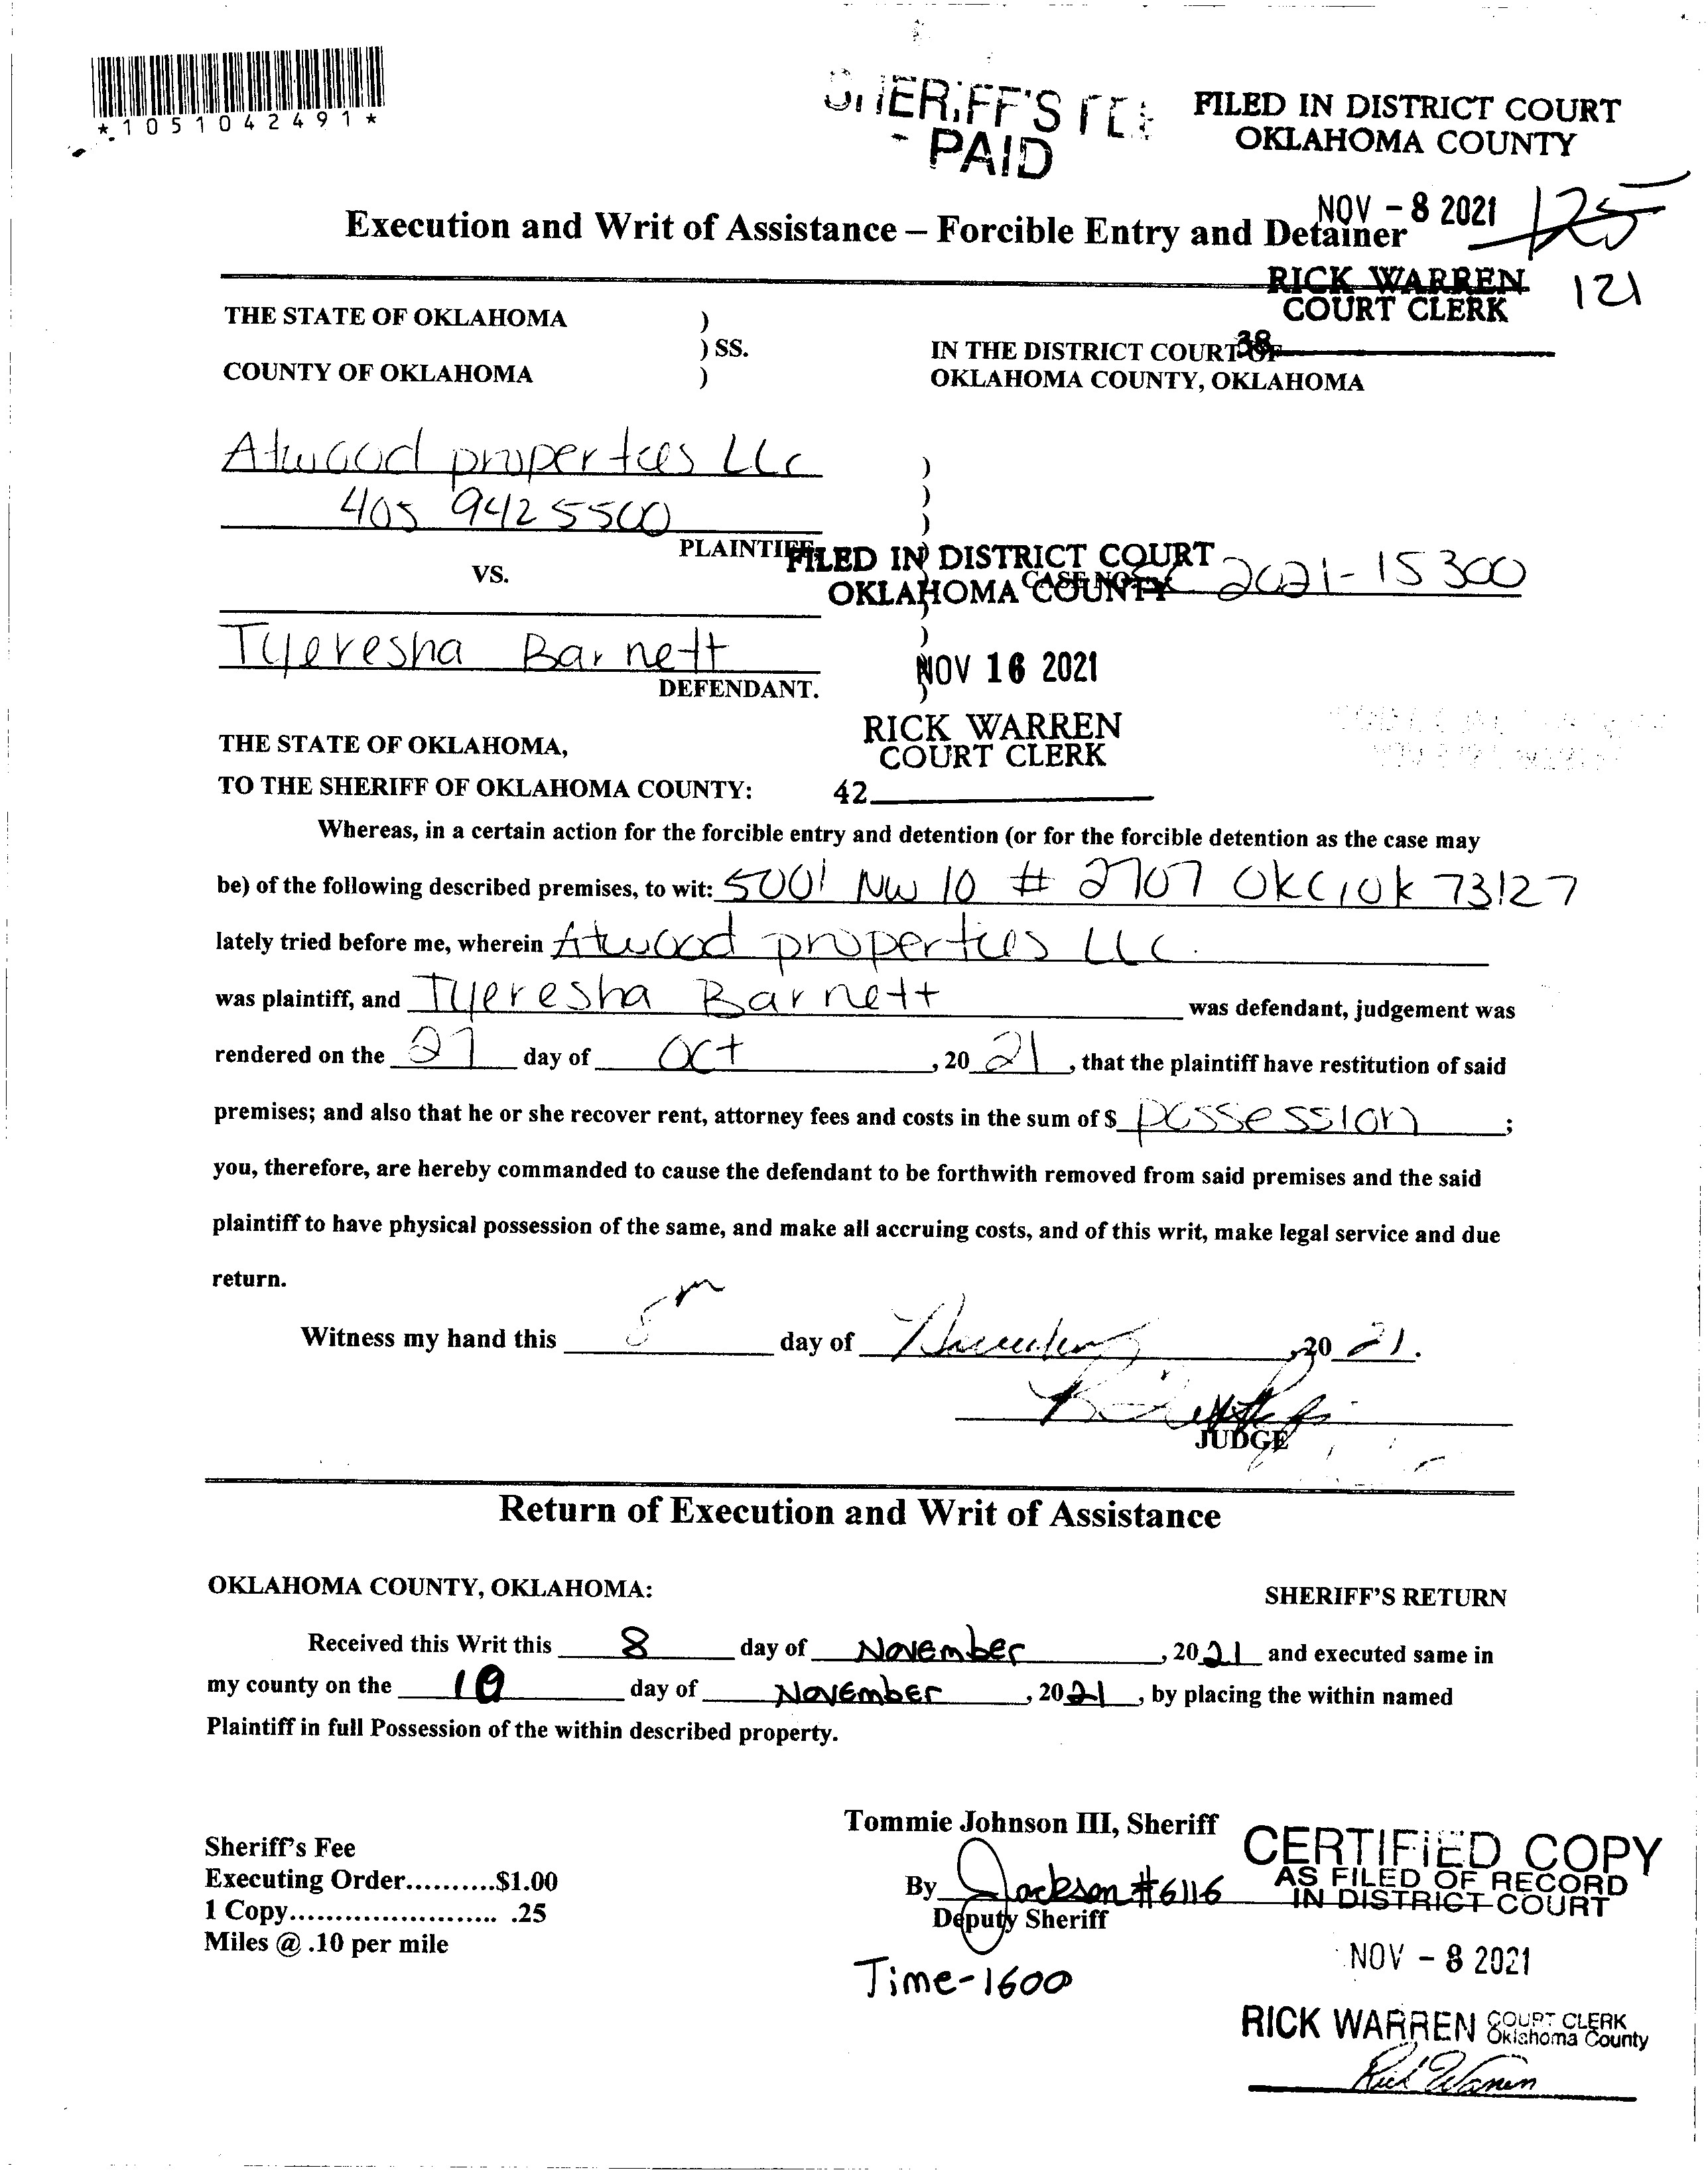 *1051042491*
SHERIFF'S FEE
PAID
FILED IN DISTRICT COURT
OKLAHOMA COUNTY
NOV - 8 2021
125
Execution and Writ of Assistance – Forcible Entry and Detainer
RICK WARREN
COURT CLERK
121
38
THE STATE OF OKLAHOMA )
) SS.
COUNTY OF OKLAHOMA )
IN THE DISTRICT COURT OF
OKLAHOMA COUNTY, OKLAHOMA
Atwood properties LLC )
405 942 5500 )
)
PLAINTIFF,
VS.
FILED IN DISTRICT COURT
OKLAHOMA COUNTY
CASE NO. SC 2021-15300
Tyeresha Barnett
DEFENDANT.
NOV 16 2021
RICK WARREN
COURT CLERK
42
THE STATE OF OKLAHOMA,
TO THE SHERIFF OF OKLAHOMA COUNTY:
Whereas, in a certain action for the forcible entry and detention (or for the forcible detention as the case may
be) of the following described premises, to wit: 5001 NW 10 # 2707 OKC, OK 73127
lately tried before me, wherein Atwood properties LLC.
was plaintiff, and Tyeresha Barnett was defendant, judgement was
rendered on the 27 day of Oct, 20 21, that the plaintiff have restitution of said
premises; and also that he or she recover rent, attorney fees and costs in the sum of $ possession;
you, therefore, are hereby commanded to cause the defendant to be forthwith removed from said premises and the said
plaintiff to have physical possession of the same, and make all accruing costs, and of this writ, make legal service and due
return.
Witness my hand this 8th day of November, 20 21.
JUDGE
Return of Execution and Writ of Assistance
OKLAHOMA COUNTY, OKLAHOMA:
SHERIFF'S RETURN
Received this Writ this 8 day of November, 20 21 and executed same in
my county on the 10 day of November, 20 21, by placing the within named
Plaintiff in full Possession of the within described property.
Tommie Johnson III, Sheriff
By Jackson #6116
Deputy Sheriff
Time-1600
Sheriff's Fee
Executing Order..........$1.00
1 Copy........................ .25
Miles @ .10 per mile
CERTIFIED COPY
AS FILED OF RECORD
IN DISTRICT COURT
NOV - 8 2021
RICK WARREN COURT CLERK
Oklahoma County
Rick Warren